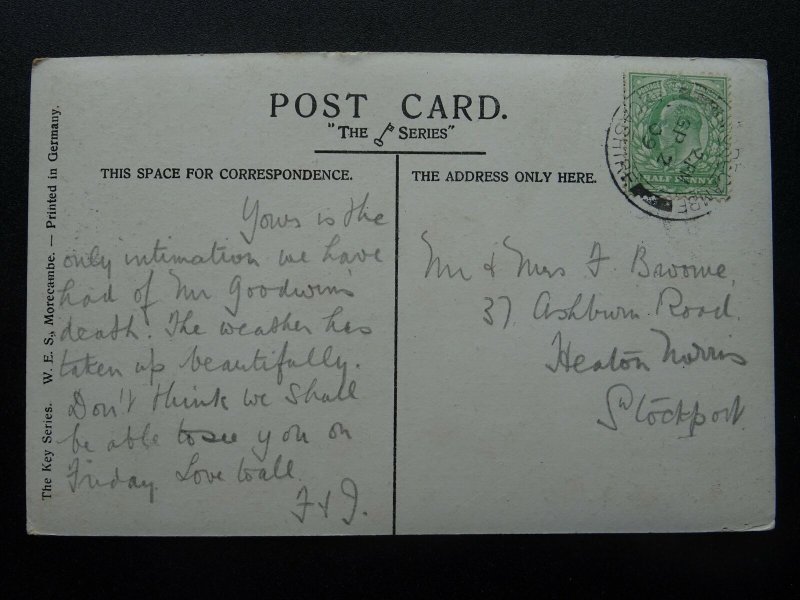 POST CARD.
"THE KEY SERIES"
THIS SPACE FOR CORRESPONDENCE.
THE ADDRESS ONLY HERE.
The Key Series. W. E. S., Morecambe. — Printed in Germany.
Yours is the
only intimation we have
had of Mr Goodwin's
death. The weather has
taken up beautifully.
Don't think we shall
be able to see you on
Friday. Love to all.
F & J.
Mr & Mrs F. Broome,
37, Ashburn Road,
Heaton Norris
Stockport
HALF PENNY
SP 2
09